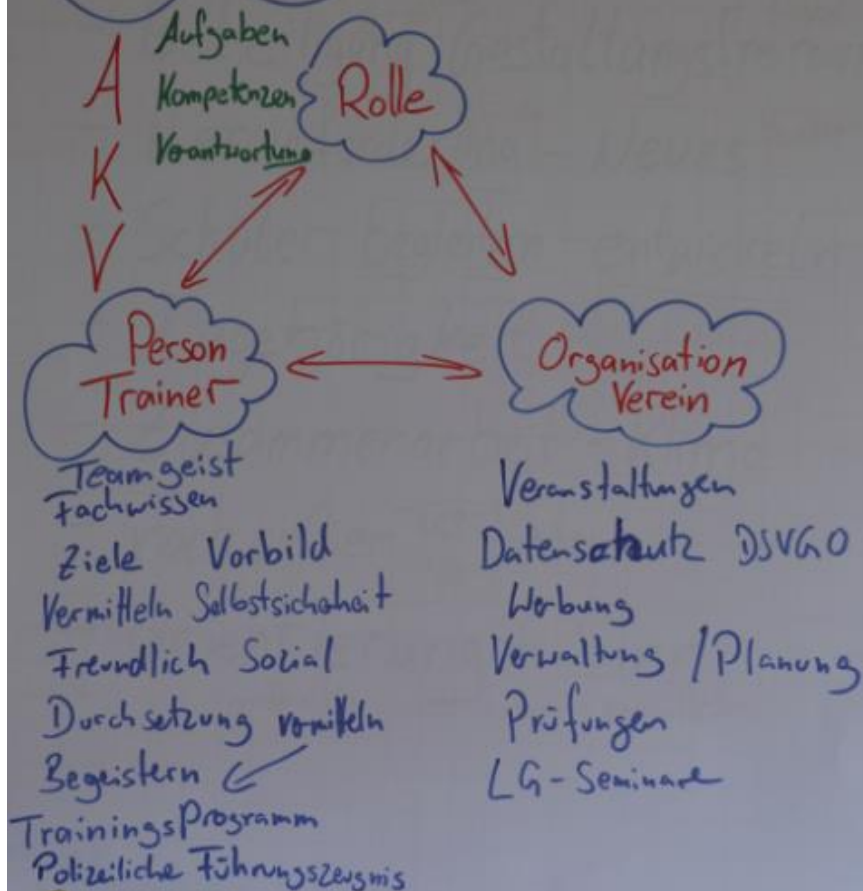 A
K
V
Aufgaben
Kompetenzen
Verantwortung
Rolle
Person
Trainer
Organisation
Verein
Teamgeist
Fachwissen
Ziele Vorbild
Vermitteln Selbstsicherheit
Freundlich Sozial
Durchsetzung vermitteln
Begeistern
TrainingsProgramm
Polizeiliche Führungszeugnis
Veranstaltungen
Datenschutz DSVGO
Werbung
Verwaltung / Planung
Prüfungen
LG-Seminare